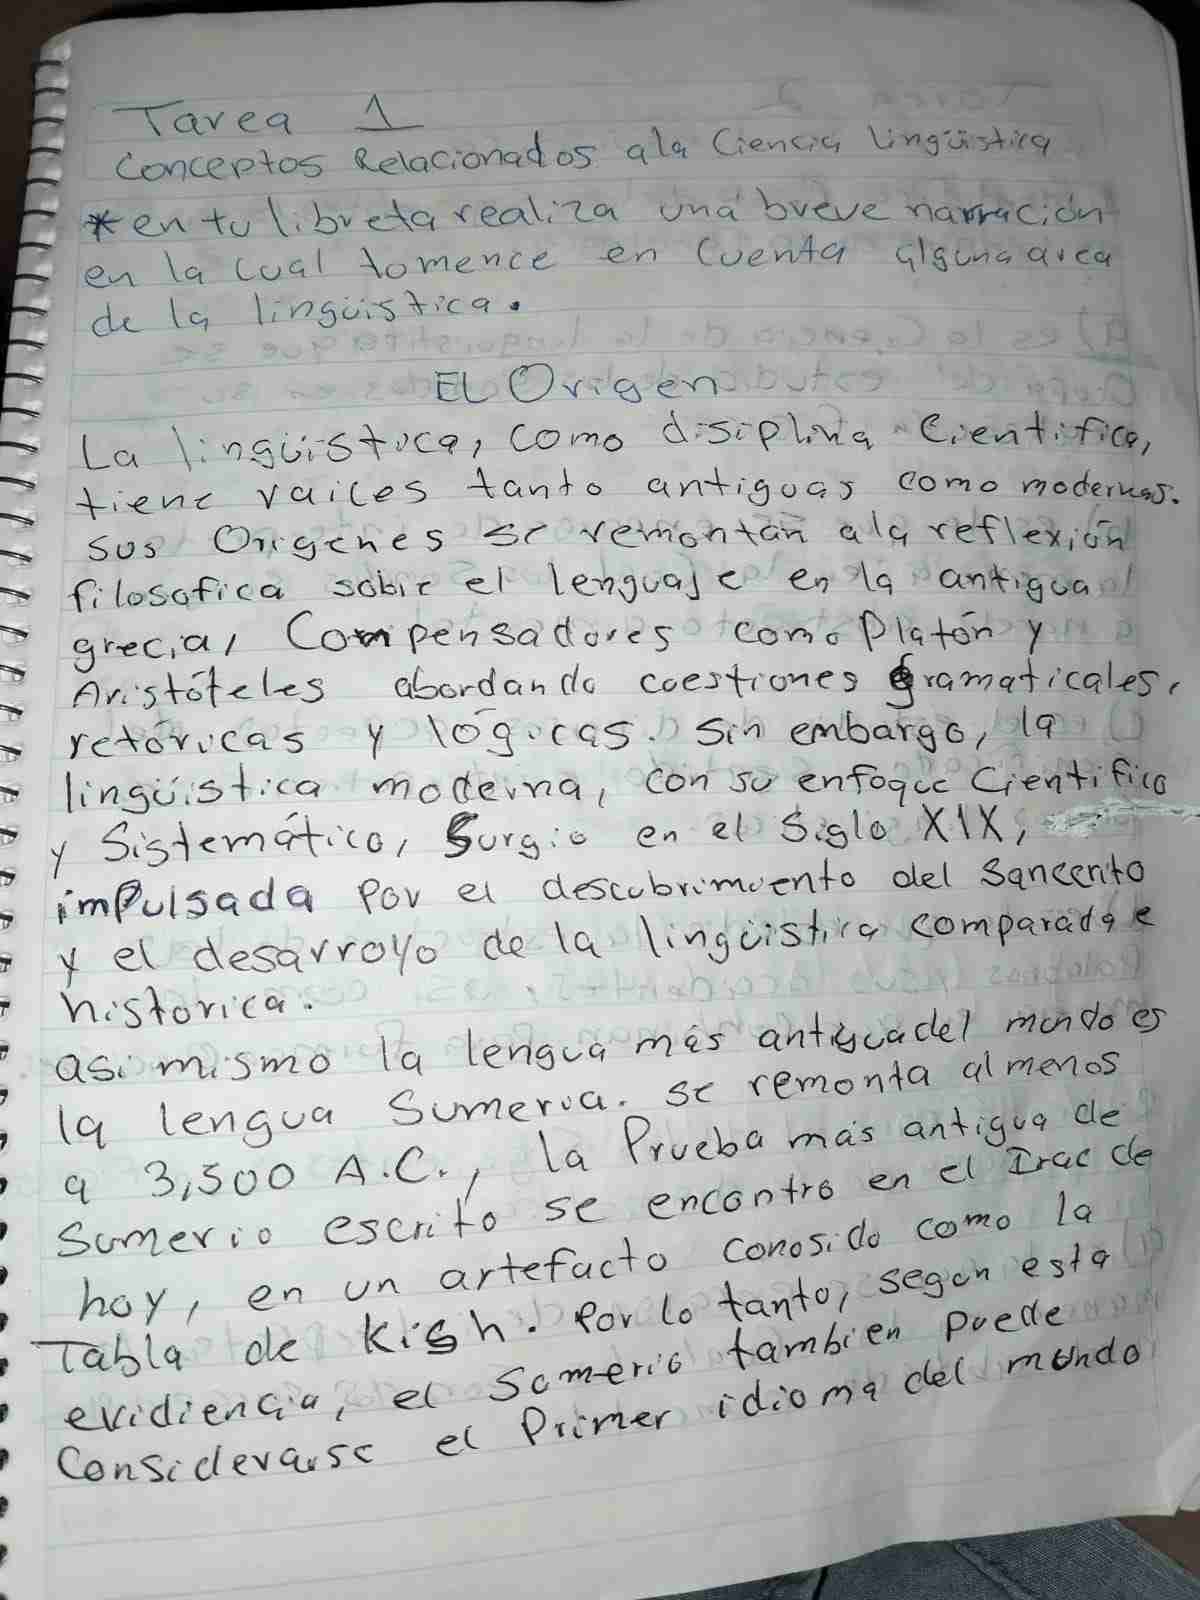 Tarea 1
Conceptos Relacionados a la Ciencia lingüística
*en tu libreta realiza una breve narración
en la cual tomence en cuenta alguna area
de la lingüística.
EL Origen
La lingüística, como disiplina Cientifica,
tiene raices tanto antiguas como modernas.
sus Origenes se remontan a la reflexión
filosofica sobre el lenguaje en la antigua
grecia, Com pensadores como Platón y
Aristóteles abordando cuestiones gramaticales,
retóricas y lógicas. Sin embargo, la
lingüística moderna, con su enfoque Cientifico
y Sistemático, Surgio en el Siglo XIX,
impulsada por el descubrimiento del Sancerito
y el desarroyo de la lingüistica comparada e
historica.
asi mismo la lengua más antigua del mundo es
la lengua Sumeria. se remonta al menos
a 3,500 A.C., la Prueba mas antigua de
Sumerio escrito se encontro en el Irac de
hoy, en un artefacto conosido como la
Tabla de Kish. Por lo tanto, segun esta
evidiencia, el Sumerio tambien puede
Considerarse el Primer idioma del mundo